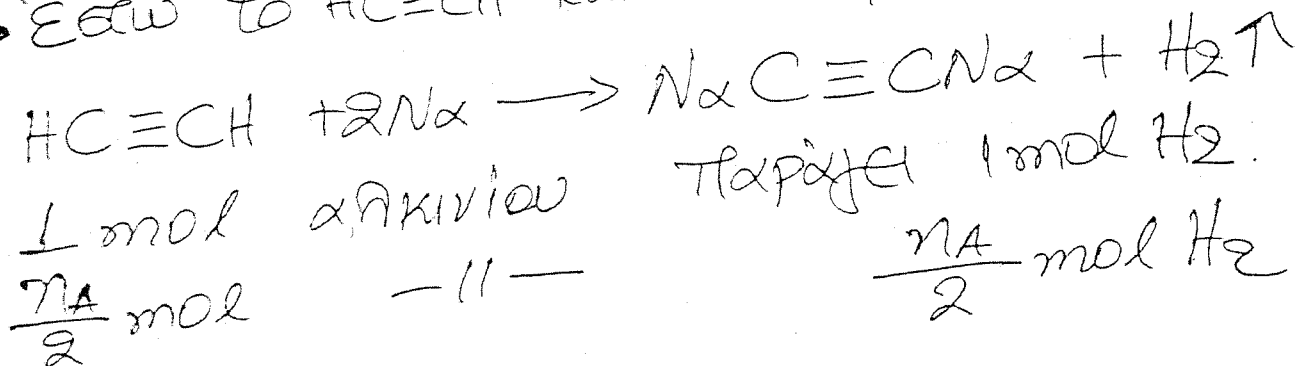 • Εστω το HC≡CH
HC≡CH +2Nα → NαC≡CNα + H2↑
1 mol αλκινίου παράγει 1 mol H2.
nA/2 mol -//- nA/2 mol H2